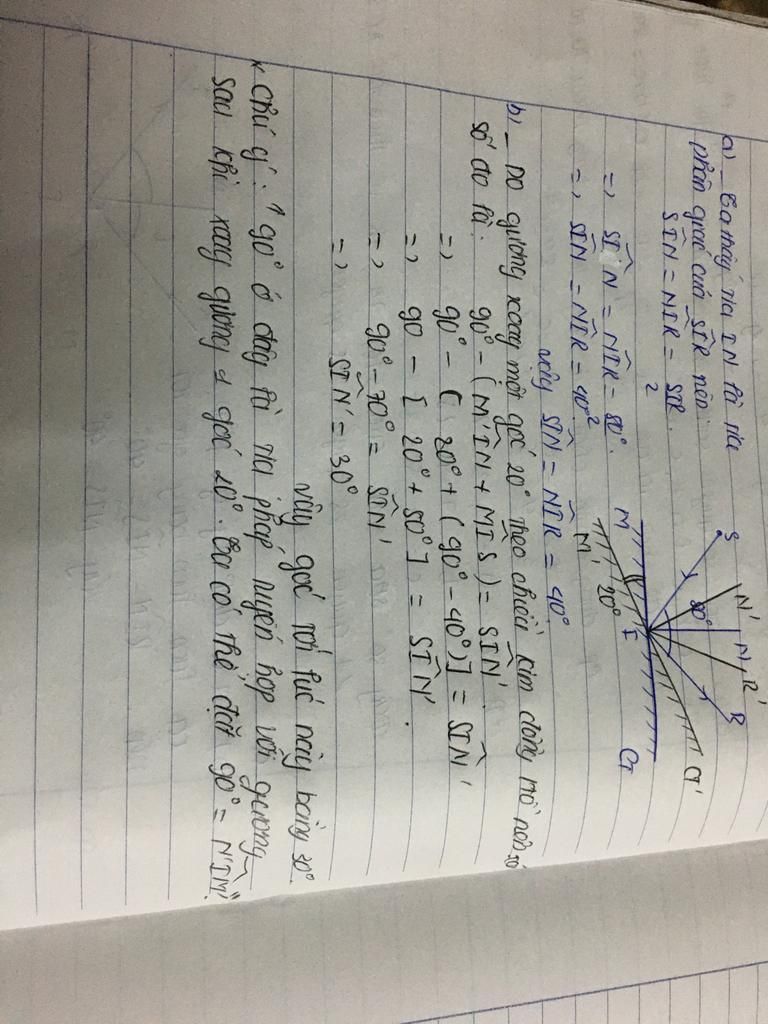 a) _ Ta thấy tia IN là tia
phân giác của SIR nên:
SIN = NIR = SIR
2
=> SIN = NIR = 80°
2
=> SIN = NIR = 40°
Vậy SIN = NIR = 40°
S
N'
N
R'
R
80°
M
I
G
M'
20°
G'
b) _ Do gương xoay một góc 20° theo chiều kim đồng hồ nên
số đo là: 90° - (M'IN + MIS) = SIN'
=> 90° - [ 20° + (90° - 40°)] = SIN'
=> 90 - [ 20° + 50°] = SIN'.
=> 90° - 70° = SIN'
=> SIN' = 30°
Vậy góc tới lúc này bằng 30°.
* Chú ý: "90° ở đây là tia pháp tuyến hợp với gương
sau khi xoay gương 1 góc 20°. Ta có thể đặt 90° = N'IM'."